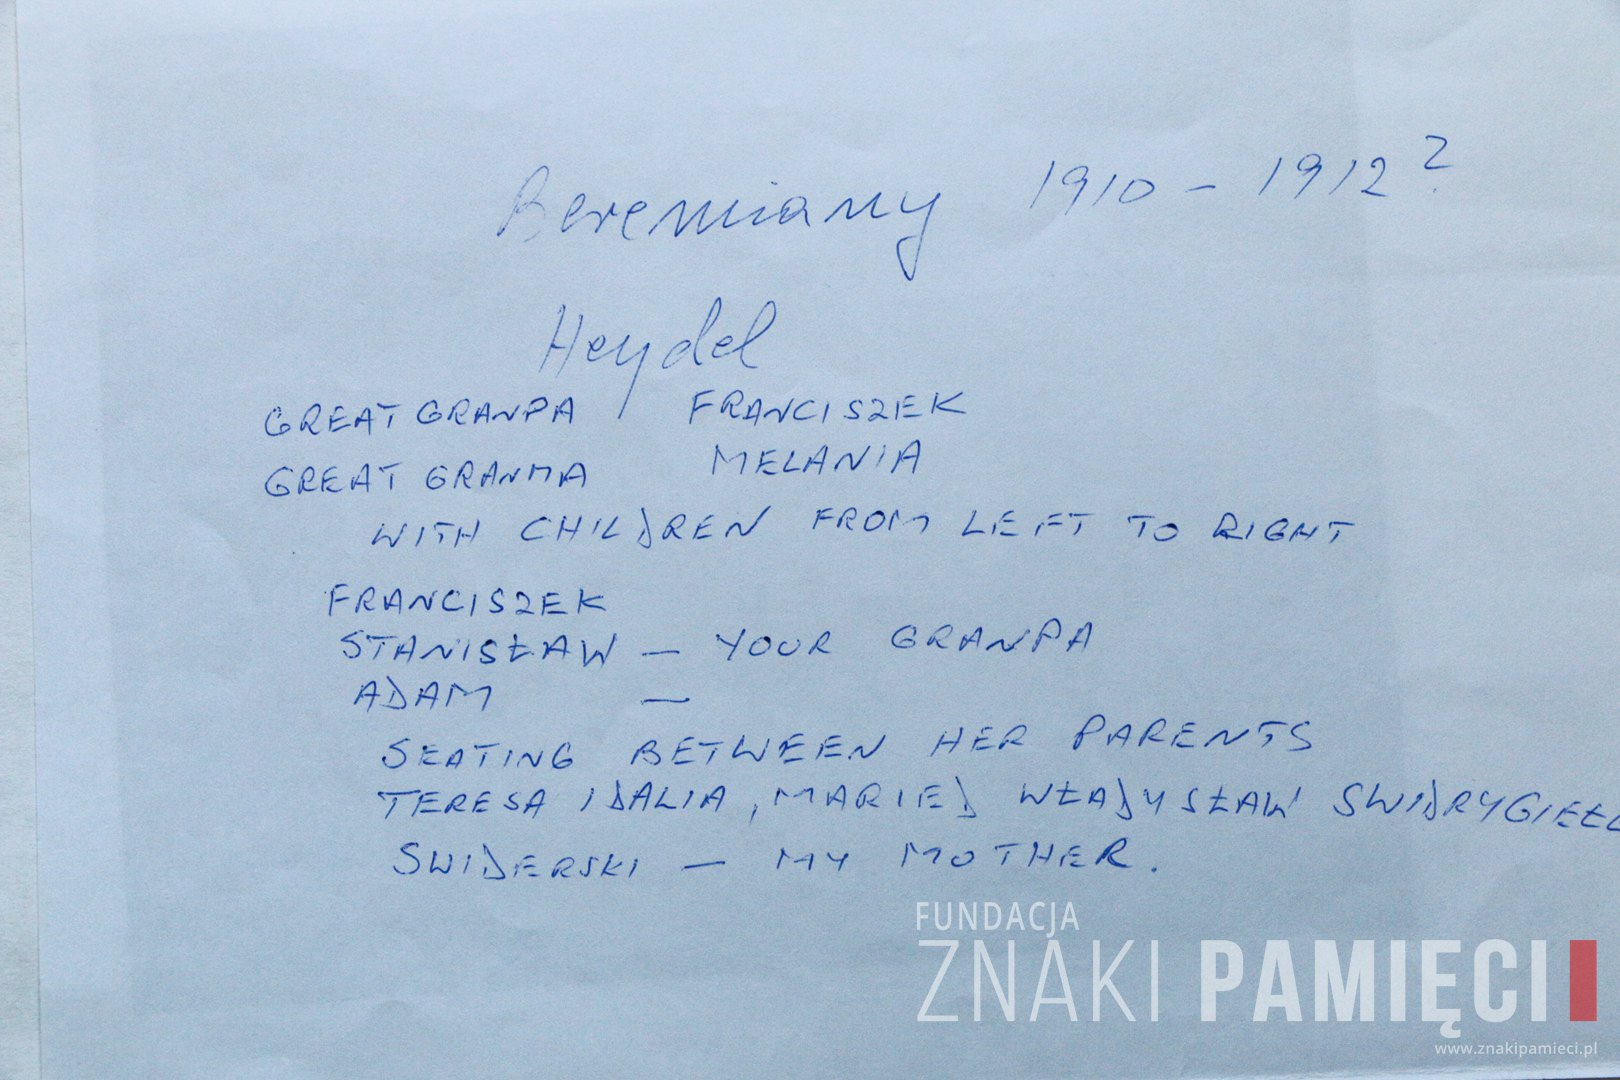 Beremiany 1910 - 1912 ?
Heydel
GREAT GRANPA FRANCISZEK
GREAT GRANMA MELANIA
WITH CHILDREN FROM LEFT TO RIGHT
FRANCISZEK
STANISŁAW — YOUR GRANPA
ADAM —
SEATING BETWEEN HER PARENTS
TERESA IDALIA, MARIED WŁADYSŁAW SWIDRYGIEŁŁ
SWIDERSKI — MY MOTHER.
FUNDACJA
ZNAKI PAMIĘCI
www.znakipamieci.pl